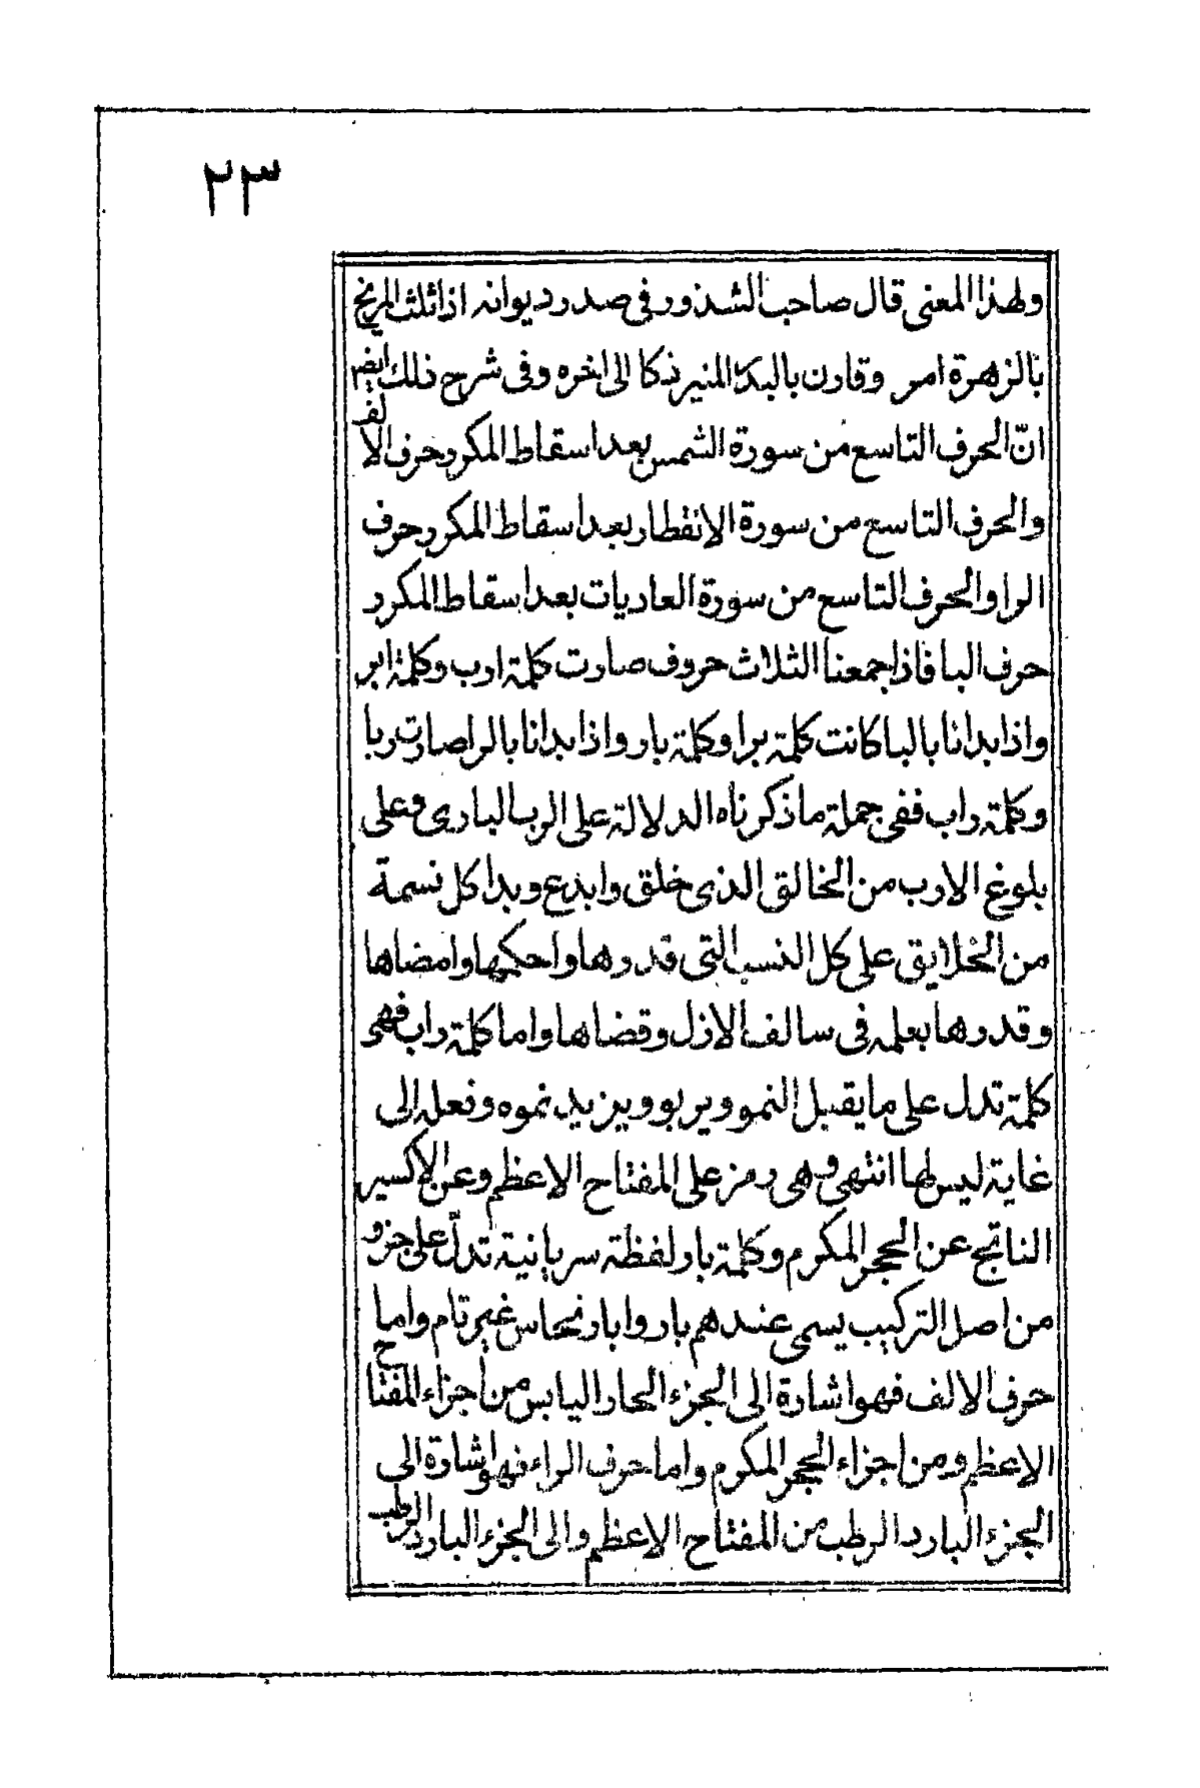 ٢٣
ولهذا المعنى قال صاحب الشذور فى صدر ديوانه اذا ثلث المريخ
بالزهرة امر وقارن بالبدر المنير ذكا الى اخره وفى شرح ذلك ايضا
انّ الحرف التاسع من سورة الشمس بعد اسقاط المكرر حرف الالف
والحرف التاسع من سورة الانفطار بعد اسقاط المكرر حرف
الرا والحرف التاسع من سورة العاديات بعد اسقاط المكرر
حرف البا فاذا جمعنا الثلاث حروف صارت كلمة ارب وكلمة ابر
واذا بدانا بالبا كانت كلمة برا وكلمة بار واذا بدانا بالرا صارت ربا
وكلمة راب ففى جملة ما ذكرناه الدلالة على الرب البارى وعلى
بلوغ الارب من الخالق الذى خلق وابدع وبدا كل نسمة
من الخلايق على كل النسب التى قدرها واحكمها وامضاها
وقدرها بعلمه فى سالف الازل وقضاها واما كلمة راب فهى
كلمة تدل على ما يقبل النمو ويربو ويزيد نموه وفعله الى
غاية ليس لها انتهى وهى رمز على المفتاح الاعظم وعن الاكسير
الناتج عن الحجر المكرم وكلمة بار لفظة سريانية تدلّ على جزو
من اصل التركيب يسمى عندهم بار وابار نحاس غير تام واما
حرف الالف فهو اشارة الى الجزء الحار اليابس من اجزاء المفتاح
الاعظم ومن اجزاء الحجر المكرم واما حرف الراء فهو اشارة الى
الجزء البارد الرطب من المفتاح الاعظم والى الجزء البارد الرطب